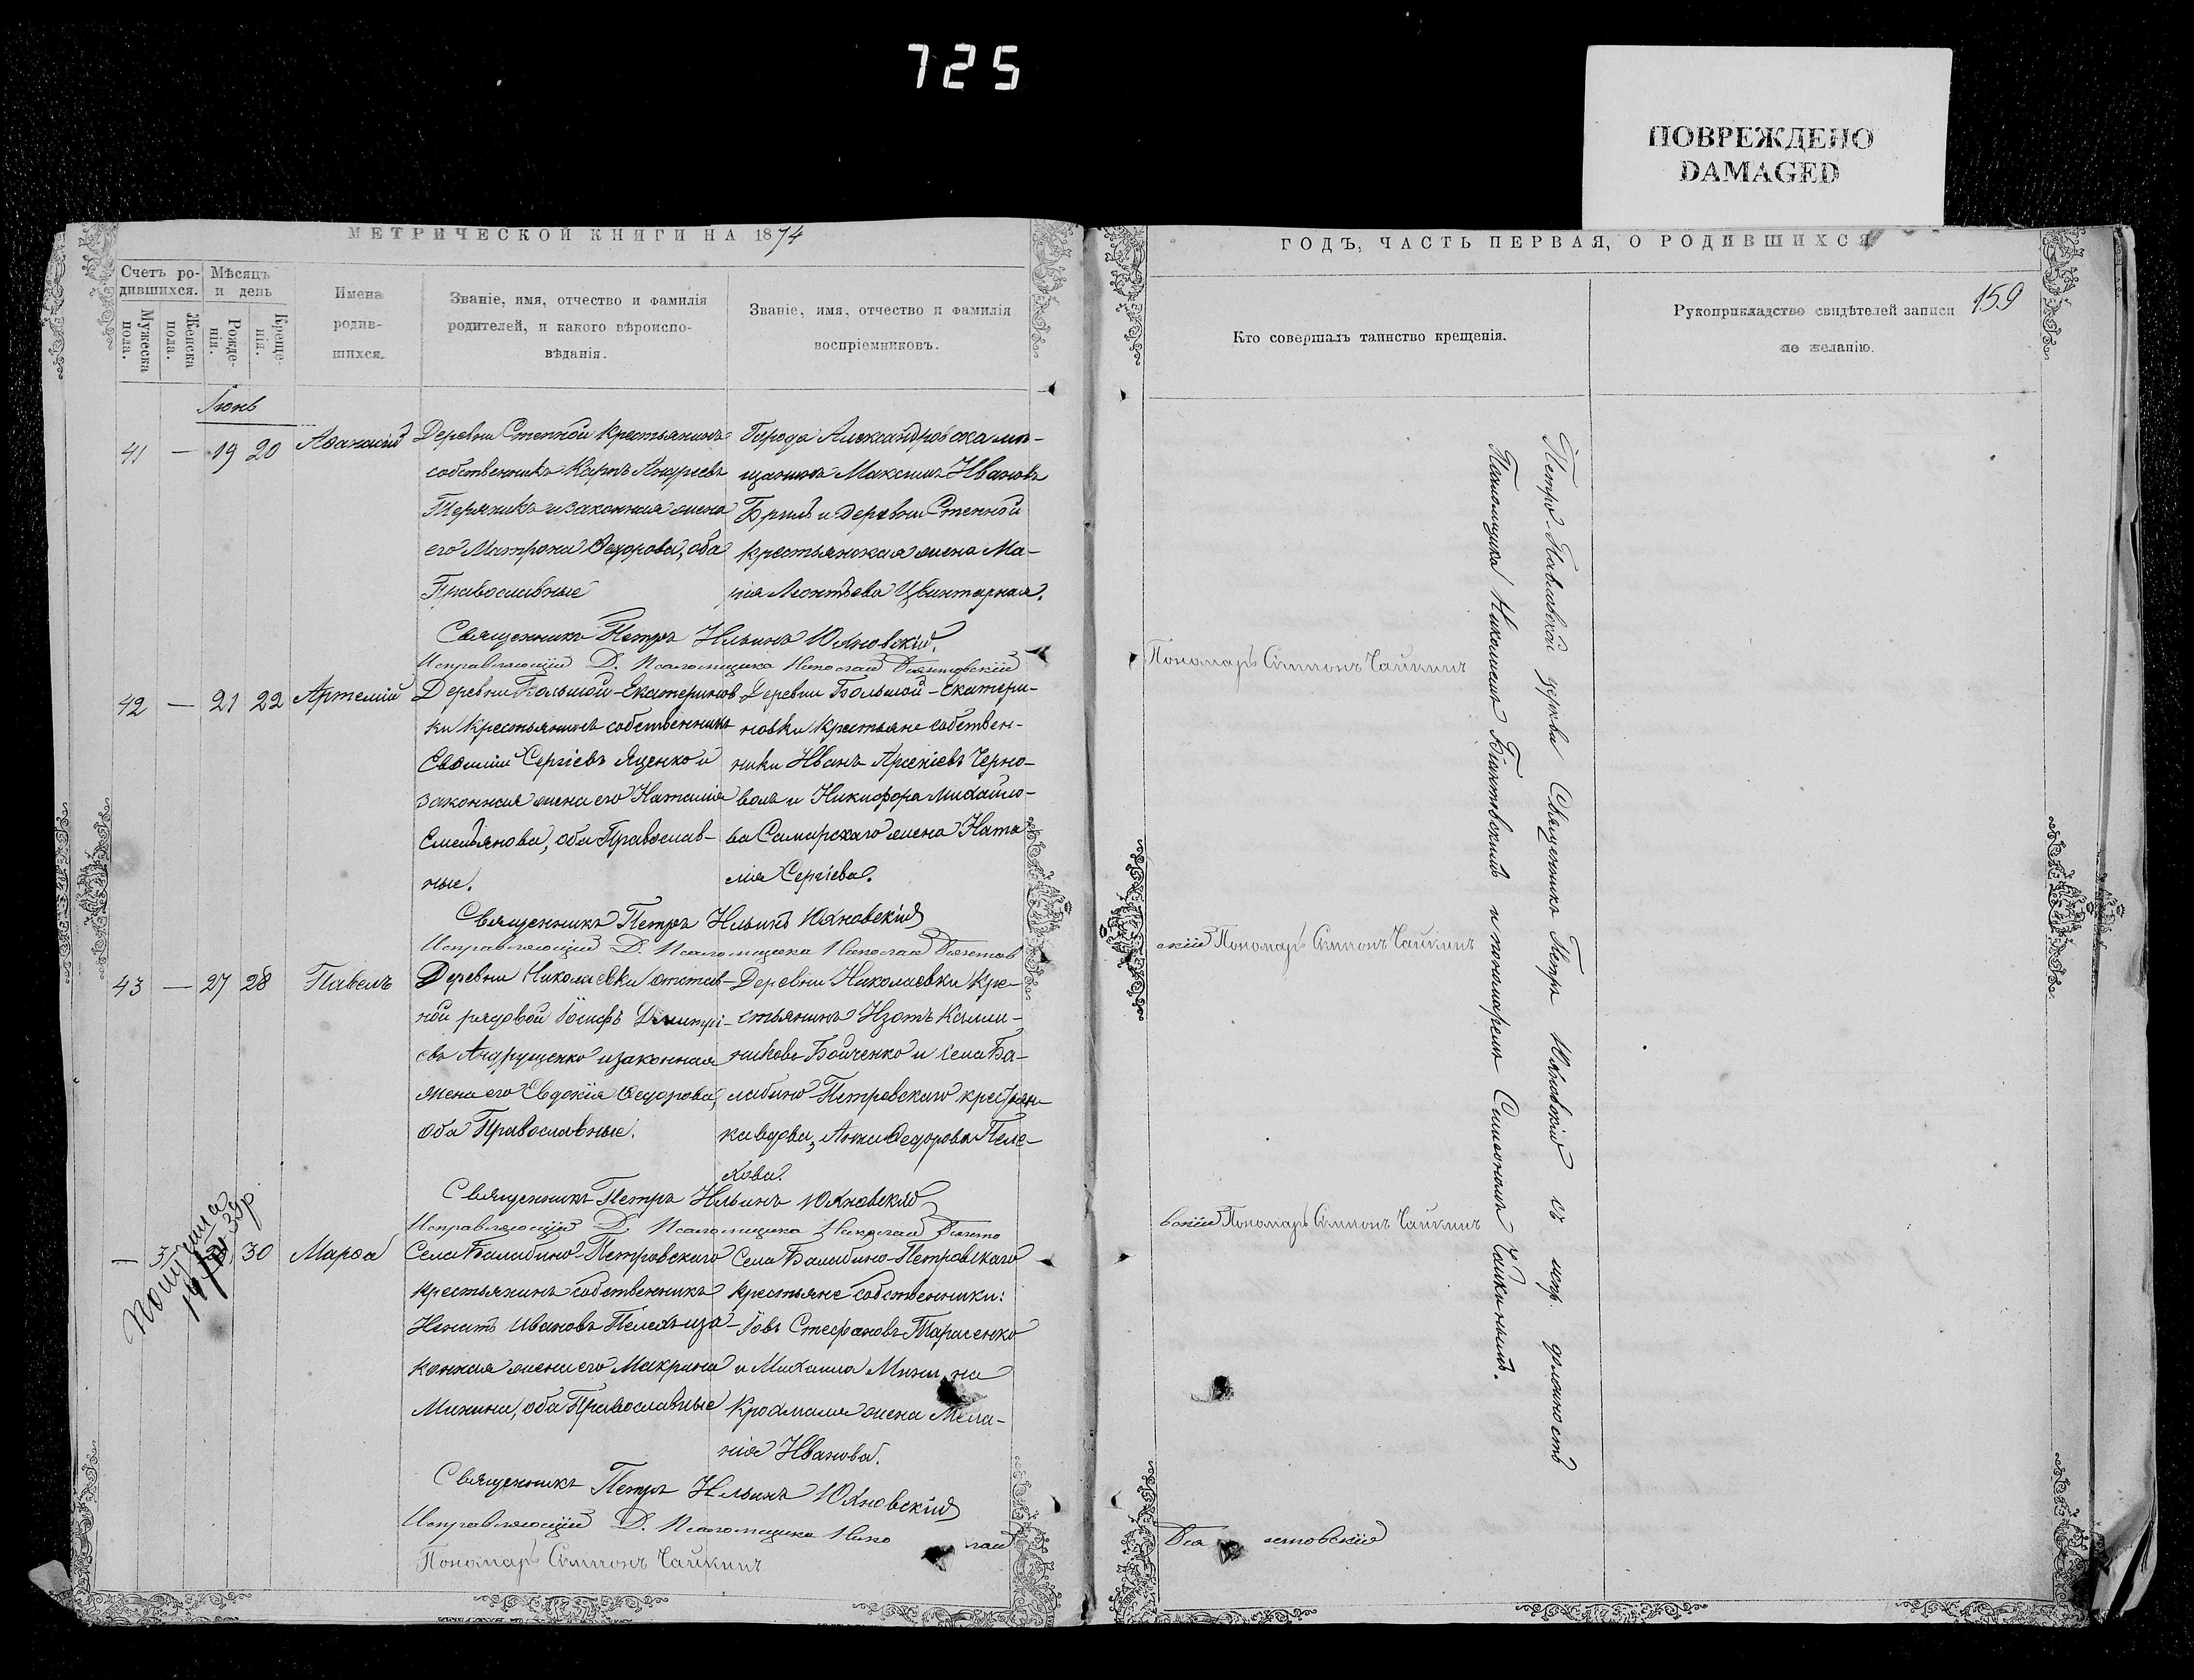 725
ПОВРЕЖДЕНО
DAMAGED
МЕТРИЧЕСКОЙ КНИГИ НА 1874
Счетъ ро-
дившихся.
Мужеска пола.
Женска пола.
Мѣсяцъ
и день
Рожде-
нія.
Креще-
нія.
Имена
родив-
шихся.
Званіе, имя, отчество и фамилія
родителей, и какого вѣроиспо-
вѣданія.
Званіе, имя, отчество и фамилія
воспріемниковъ.
Іюнь
41 — 19 20 Аѳанасій
Деревни Степной крестьянинъ
собственникъ Карпъ Андреевъ
и законная жена
его Матрона Ѳедорова, оба
Православные
Города Александровска мѣ-
щанинъ Максимъ Ивановъ
Бриль и деревни Степной
крестьянская жена Ма-
рія Леонтьева Цвинтарная.
Священникъ Петръ Ильинъ Юхновскій.
Исправляющій Д. Псаломщика Николай
42 — 21 22 Артемій
Деревни Большой-Екатеринов
ки крестьянинъ собственникъ
Евѳимій Сергіевъ Яценко и
законная жена его Наталія
Емельянова, оба Православ-
ные.
Деревни Большой-Екатери-
новки крестьяне собствен-
ники Иванъ Арсеніевъ Черно-
волъ и Никифора Михайло-
ва Самарскаго жена Ната
лія Сергіева.
Священникъ Петръ Ильинъ Юхновскій
Исправляющій Д. Псаломщика Николай
43 — 27 28 Павелъ
Деревни Николаевки отстав-
ной рядовой Іосифъ Дмитрі-
евъ Андрущенко и законная
жена его Евдокія Ѳедорова,
оба Православные.
Деревни Николаевки кре-
стьянинъ Изотъ Калли-
никовъ Бойченко и села Ба-
лабино-Петровскаго крестьян
ка вдова, Анна Ѳедорова Пеле-
хова.
Священникъ Петръ Ильинъ Юхновскій
Исправляющій Д. Псаломщика Николай
— 30 Марѳа
Села Балабино-Петровскаго
крестьянинъ собственникъ
Игнатъ Ивановъ Пелехъ и за-
конная жена его Макрина
Минина, оба Православные
Села Балабино-Петровскаго
крестьяне собственники:
Іовъ Стефановъ Тарасенко
и Михаила Минина
Крохмаля жена Мела-
нія Иванова.
Священникъ Петръ Ильинъ Юхновскій
Исправляющій Д. Псаломщика Николай
Пономарь Симеонъ Чайкинъ
ГОДЪ, ЧАСТЬ ПЕРВАЯ, О РОДИВШИХСЯ
159
Кто совершалъ таинство крещенія.
Рукоприкладство свидѣтелей записи
по желанію.
Петро-Павловской церкви Священникъ Петръ Юхновскій съ испр. должность
Псаломщика Николаемъ и пономаремъ Симеономъ Чайкинымъ.
Пономарь Симеонъ Чайкинъ
скій Пономарь Симеонъ Чайкинъ
вскій Пономарь Симеонъ Чайкинъ